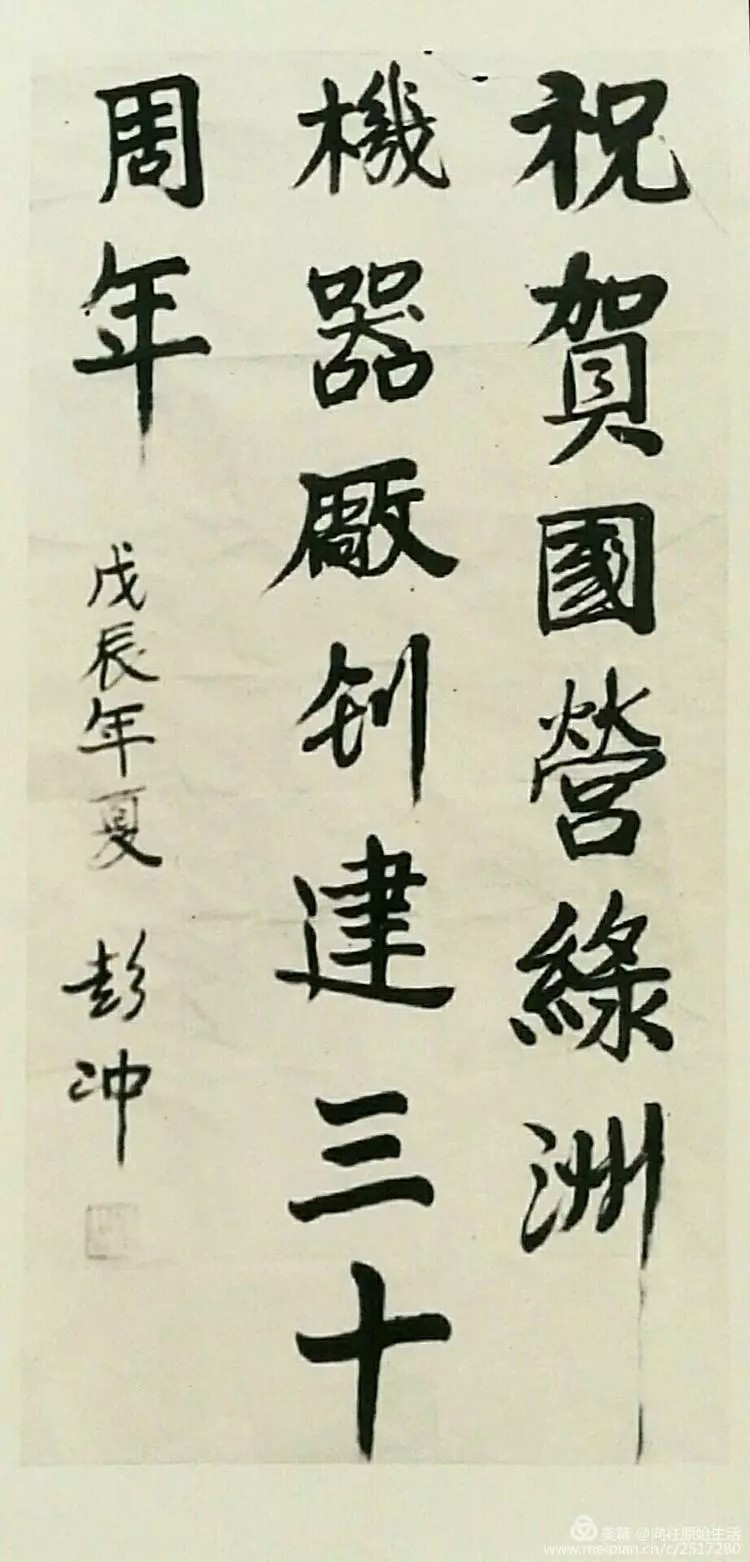 祝賀國營綠洲
機器厰刱建三十
周年
戊辰年夏
彭冲
美篇 @向往原始生活
www.meipian.cn/c/2517280